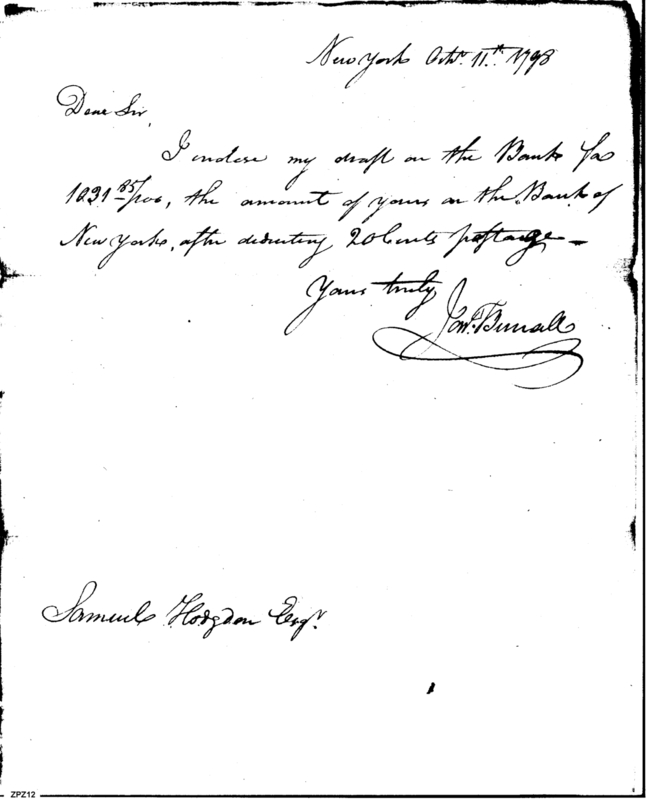 New York Octr. 11th. 1798
Dear Sir,
I enclose my draft on the Bank for
1031 85/100, the amount of yours on the Bank of
New York, after deducting 20 Cents postage —
Yours truly
Jonn. Burrall
Samuel Hodgdon Esqr.
ZPZ12